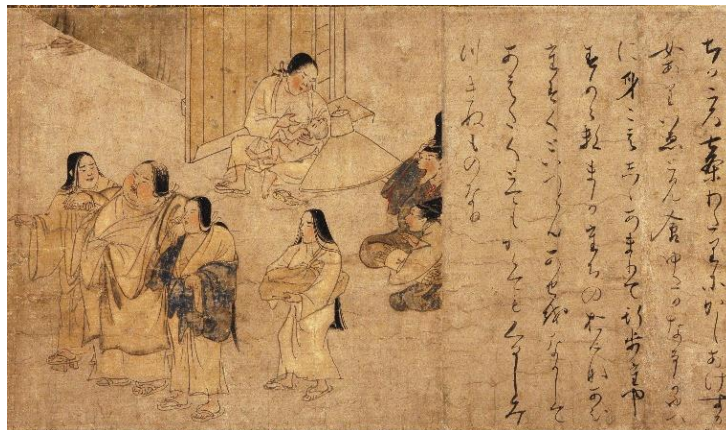 ちかころ七条わたりにかしあけする
女あり家とみ食ゆたかなるかゆへ
に身こえししあまりて行歩たや
すからすまかたちのおんなあひ
たすくといへともあせをなかして
あえきとてもかくてもくるしみ
つきぬものなり